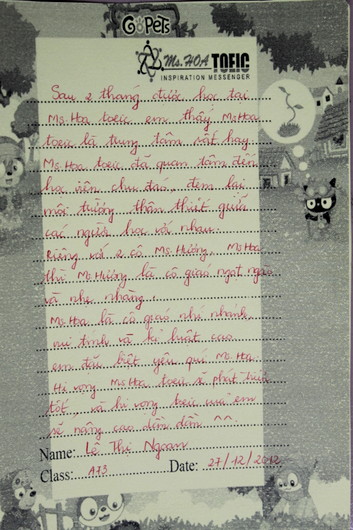 GoPets
Ms.HOA TOEIC
INSPIRATION MESSENGER
Sau 2 tháng được học tại
Ms.Hoa toeic em thấy Ms Hoa
toeic là trung tâm rất hay
Ms. Hoa toeic đã quan tâm đến
học viên chu đáo, đem lại
môi trường thân thiết giữa
các người học với nhau.
Riêng với 2 cô Ms. Hương, Ms Hoa
thì Ms Hương là cô giáo ngọt ngào
và nhẹ nhàng.
Ms. Hoa là cô giáo nhí nhảnh
vui tính và kỉ luật cao
em đặc biệt yêu quí Ms. Hoa.
Hi vọng Ms Hoa toeic sẽ phát triển
tốt, và hi vọng toeic của em
sẽ nâng cao dần dần ^^
Name: Lê Thị Ngoan
Class: A73 Date: 27/12/2012